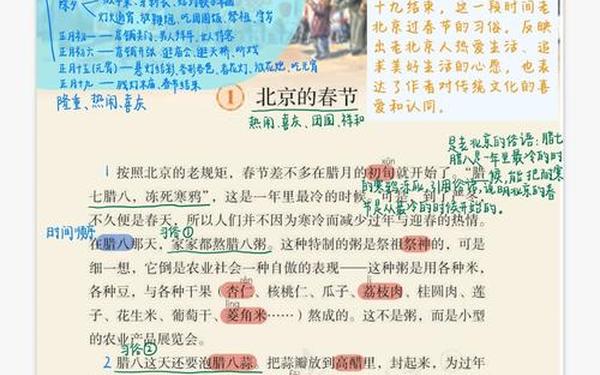 除夕
灯火通宵、放鞭炮、吃团圆饭、祭祖、守岁
正月初一——店铺关门、男人拜年、女人待客
正月初六——店铺开张、逛庙会、逛天桥、听戏
正月十五(元宵)——悬灯结彩、各形各色、春花灯、放花炮、吃元宵
正月十九——残灯末庙、春节结束
隆重、热闹、喜庆
十九结束，这一段时间老
北京过春节的习俗，反映
出老北京人热爱生活、追
求美好生活的心愿，也表
达了作者对传统文化的喜
爱和认同。
1 北京的春节
热闹、喜庆、团圆、祥和
是老北京的俗语：腊七
腊八是一年里最冷的时
候，能把
的寒鸦冻死，引用俗语，说明北京的春
节是从最冷的时候开始的。
xún
1 按照北京的老规矩，春节差不多在腊月的初旬就开始了。“腊
七腊八，冻死寒鸦”，这是一年里最冷的时候。可是，到了严冬，
不久便是春天，所以人们并不因为寒冷而减少过年与迎春的热情。
时间顺序
习俗①
在腊八那天，家家都熬腊八粥。这种特制的粥是祭祖祭神的，可是
细一想，它倒是农业社会一种自傲的表现——这种粥是用各种米，
各种豆，与各种干果（杏仁、核桃仁、瓜子、荔枝肉、桂圆肉、莲
líng
子、花生米、葡萄干、菱角米……）熬成的。这不是粥，而是小型
的农业产品展览会。
习俗②
2 腊八这天还要泡腊八蒜。把蒜瓣放到高醋里，封起来，为过年